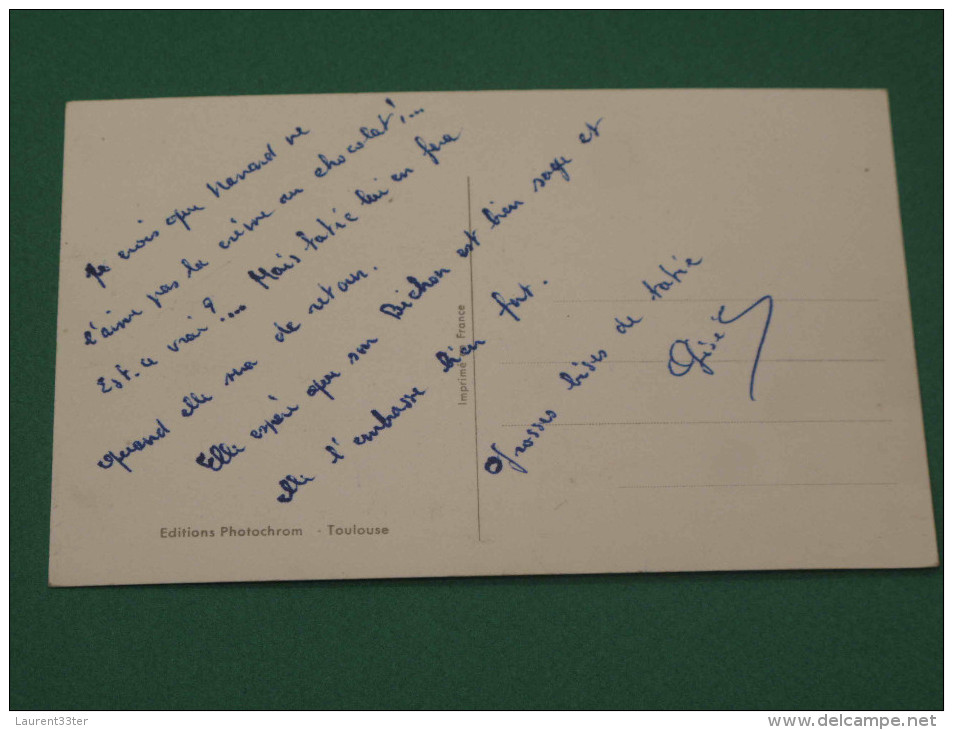 Je crois que Nanard ne
l'aime pas la crème au chocolat!...
Est-ce vrai?... Mais tatie lui en fera
quand elle sera de retour.
Elle espère que son Bichon est bien sage et
elle l'embrasse bien fort.
Grosses bises de tatie
Imprimé France
Editions Photochrom - Toulouse
Laurent33ter
www.delcampe.net